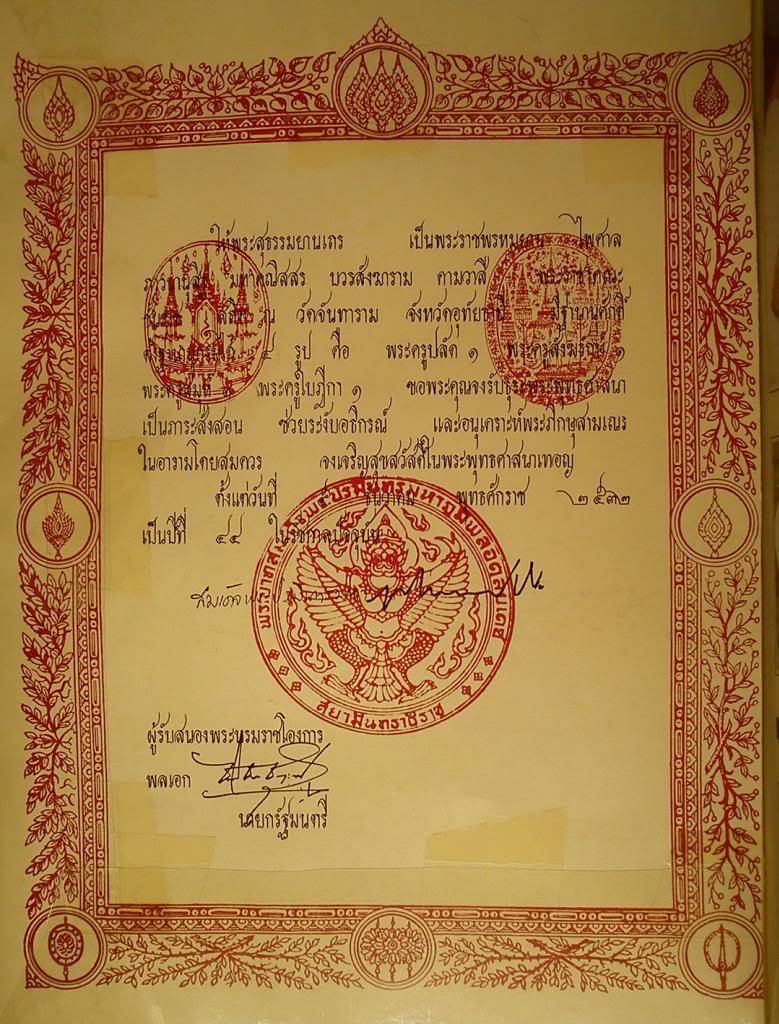 ให้พระสุธรรมยานเถร เป็นพระราชพรหมยาน ไพศาล
ภาวนานุสิฐ มหาคณิสสร บวรสังฆาราม คามวาสี พระราชาคณะ
สถิต ณ วัดจันทาราม จังหวัดอุทัยธานี มีฐานานุศักดิ์
ตั้งฐานานุกรมได้ ๔ รูป คือ พระครูปลัด ๑ พระครูสังฆรักษ์ ๑
พระครูสมุห์ ๑ พระครูใบฎีกา ๑ ขอพระคุณจงรับธุระพระพุทธศาสนา
เป็นภาระสั่งสอน ช่วยระงับอธิกรณ์ และอนุเคราะห์พระภิกษุสามเณร
ในอารามโดยสมควร จงเจริญสุขสวัสดิ์ในพระพุทธศาสนาเทอญ
ตั้งแต่วันที่ ๕ ธันวาคม พุทธศักราช ๒๕๓๒
เป็นปีที่ ๔๔ ในรัชกาลปัจจุบัน
พระบรมินทรมหาภูมิพลอดุลยเดช
สยามินทราธิราช
ผู้รับสนองพระบรมราชโองการ
พลเอก
นายกรัฐมนตรี